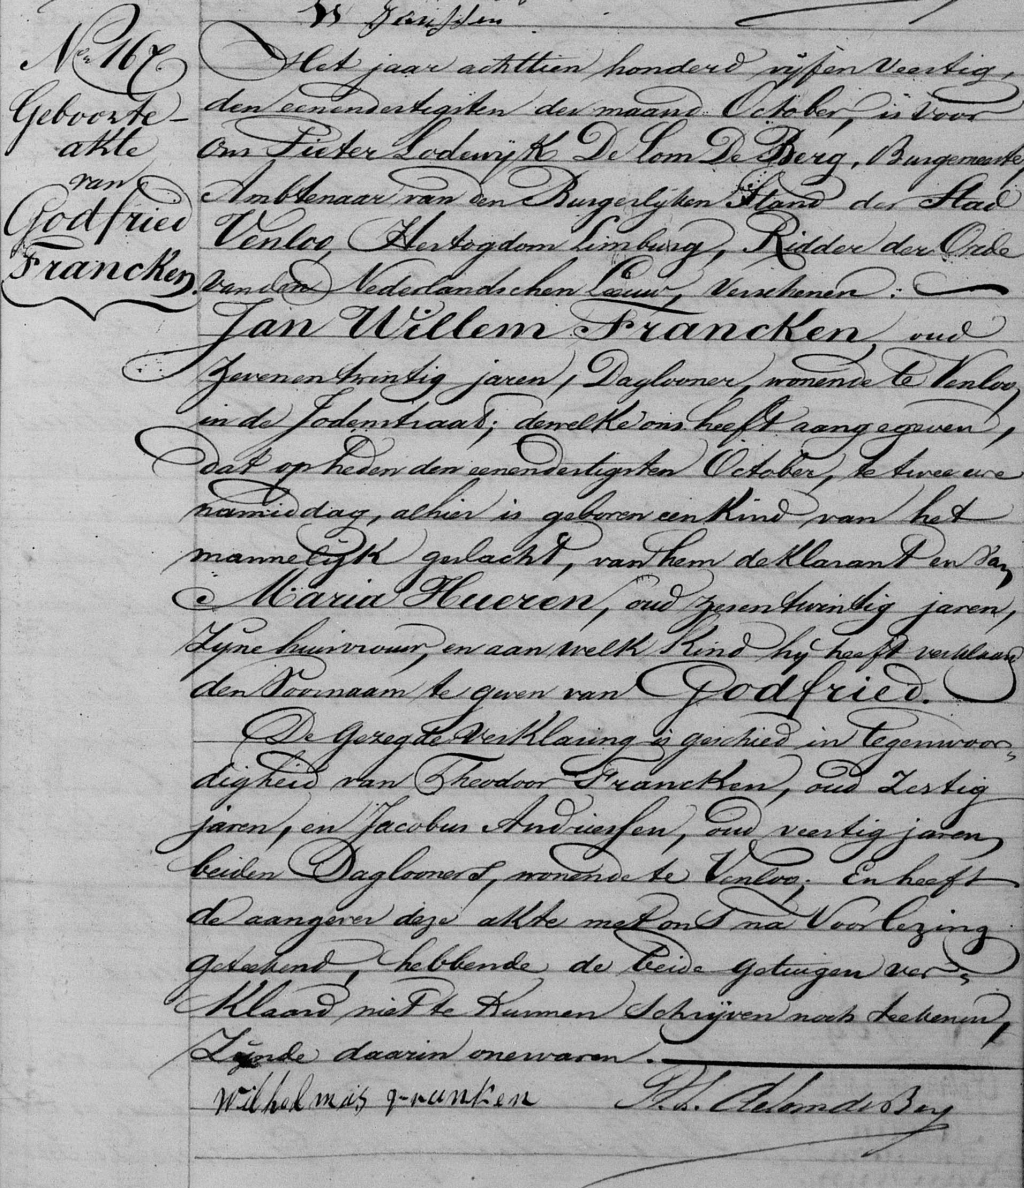 W Janssen
No 167.
Geboorte-
akte
van
Godfried
Francken.
Het jaar achttien honderd vijf en veertig,
den eenendertigsten der maand October, is voor
ons Pieter Lodewijk De Lom De Berg, Burgemeester
Ambtenaar van den Burgerlijken Stand der Stad
Venloo, Hertogdom Limburg, Ridder der Orde
van den Nederlandschen Leeuw, verschenen:
Jan Willem Francken, oud
zevenentwintig jaren, Daglooner, wonende te Venloo,
in de Jodenstraat; dewelke ons heeft aangegeven,
dat op heden den eenendertigsten October, te twee ure
namiddag, alhier is geboren een kind van het
mannelijk geslacht, van hem deklarant en van
Maria Hueren, oud zesentwintig jaren,
zijne huisvrouw, en aan welk kind hij heeft verklaard
den voornaam te geven van Godfried.
De gezegde verklaring is geschied in tegenwoor-
digheid van Theodoor Francken, oud zestig
jaren, en Jacobus Andriessen, oud veertig jaren,
beiden Daglooners, wonende te Venloo; En heeft
de aangever deze akte met ons na voorlezing
geteekend, hebbende de beide getuigen ver-
klaard niet te kunnen schrijven noch teekenen,
zijnde daarin onervaren.
Wilhelmus franken P. L. de lom de Berg